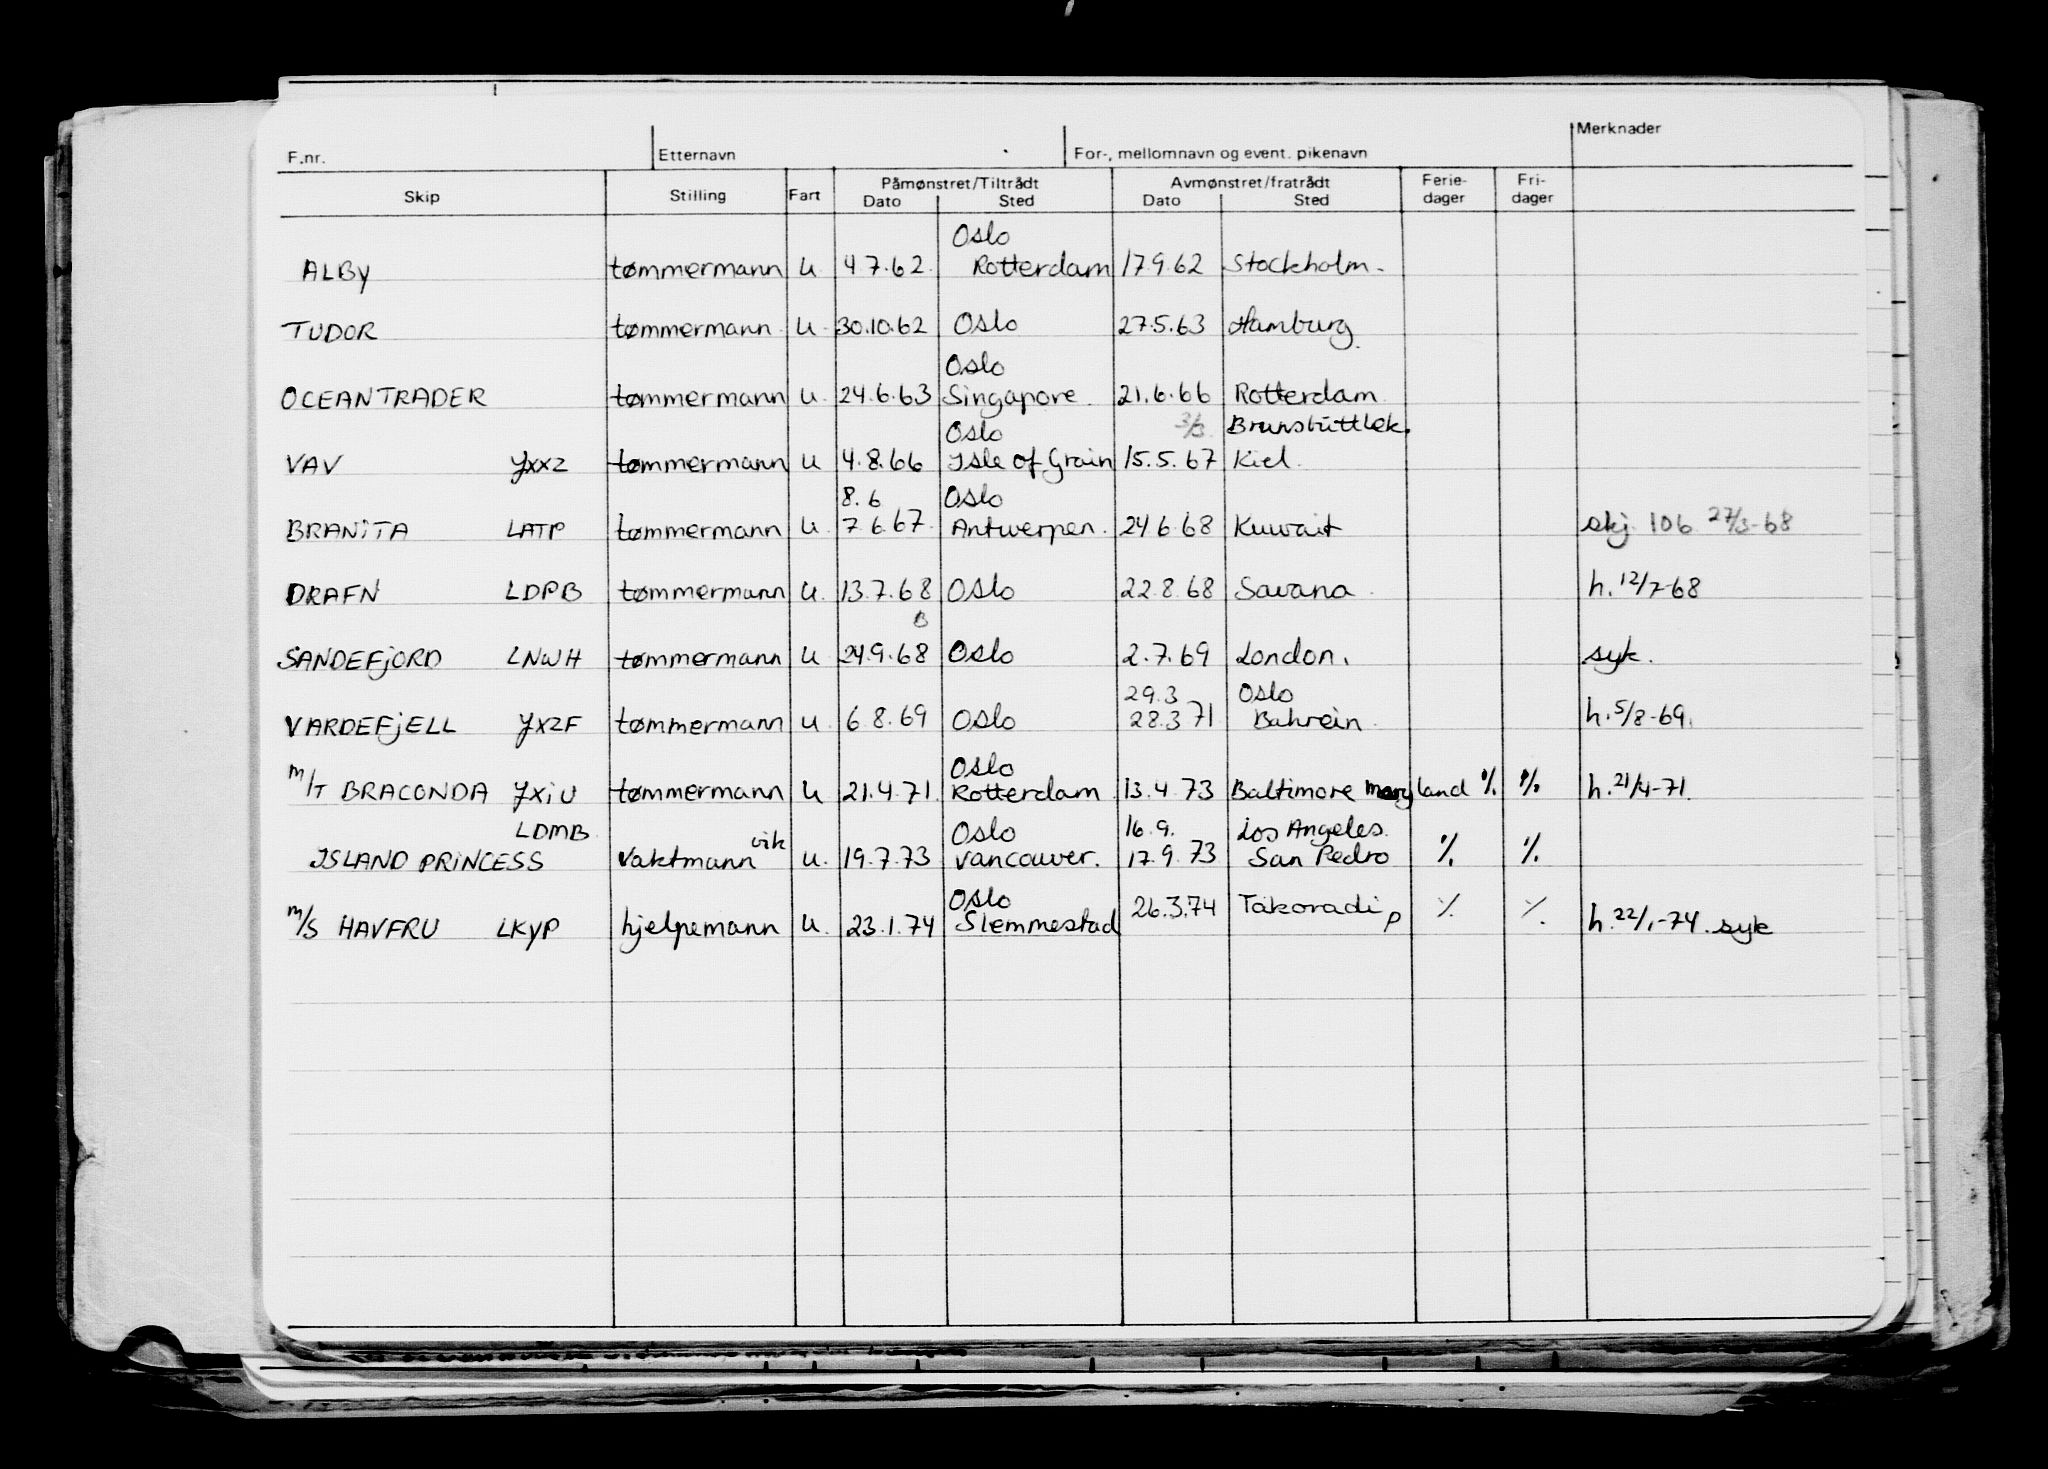 F.nr. Etternavn For-, mellomnavn og event. pikenavn Merknader
Skip Stilling Fart Påmønstret/Tiltrådt Avmønstret/fratrådt Ferie- Fri-
Dato Sted Dato Sted dager dager
Oslo
ALBY tømmermann u 4.7.62. Rotterdam 17.9.62 Stockholm.
TUDOR tømmermann u. 30.10.62 Oslo 27.5.63 Hamburg.
Oslo
OCEANTRADER tømmermann u. 24.6.63 Singapore. 21.6.66 Rotterdam
Oslo 3/3. Brunsbüttlek.
VAV JXXZ tømmermann u 4.8.66 Isle of Grain 15.5.67 Kiel.
8.6 Oslo
BRANITA LATP tømmermann u. 7.6.67. Antwerpen. 24.6.68 Kuwait skj. 106 27/3-68
DRAFN LDPB tømmermann u. 13.7.68 Oslo 22.8.68 Savana. h. 12/7-68
B
SANDEFJORD LNWH tømmermann u 24.9.68 Oslo 2.7.69 London. syk.
29.3 Oslo
VARDEFJELL JXZF tømmermann u. 6.8.69 Oslo 28.3 71 Bahrein. h. 5/8-69.
Oslo
m/T BRACONDA JXIU tømmermann u 21.4.71. Rotterdam 13.4.73 Baltimore maryland % % h. 21/4-71.
LDMB vik Oslo 16.9. Los Angeles.
ISLAND PRINCESS vaktmann u. 19.7.73 Vancouver. 17.9.73 San Pedro % %
Oslo
m/s HAVFRU LKYP hjelpemann u. 23.1.74 Slemmestad 26.3.74 Takoradi p % % h. 22/1-74. syk